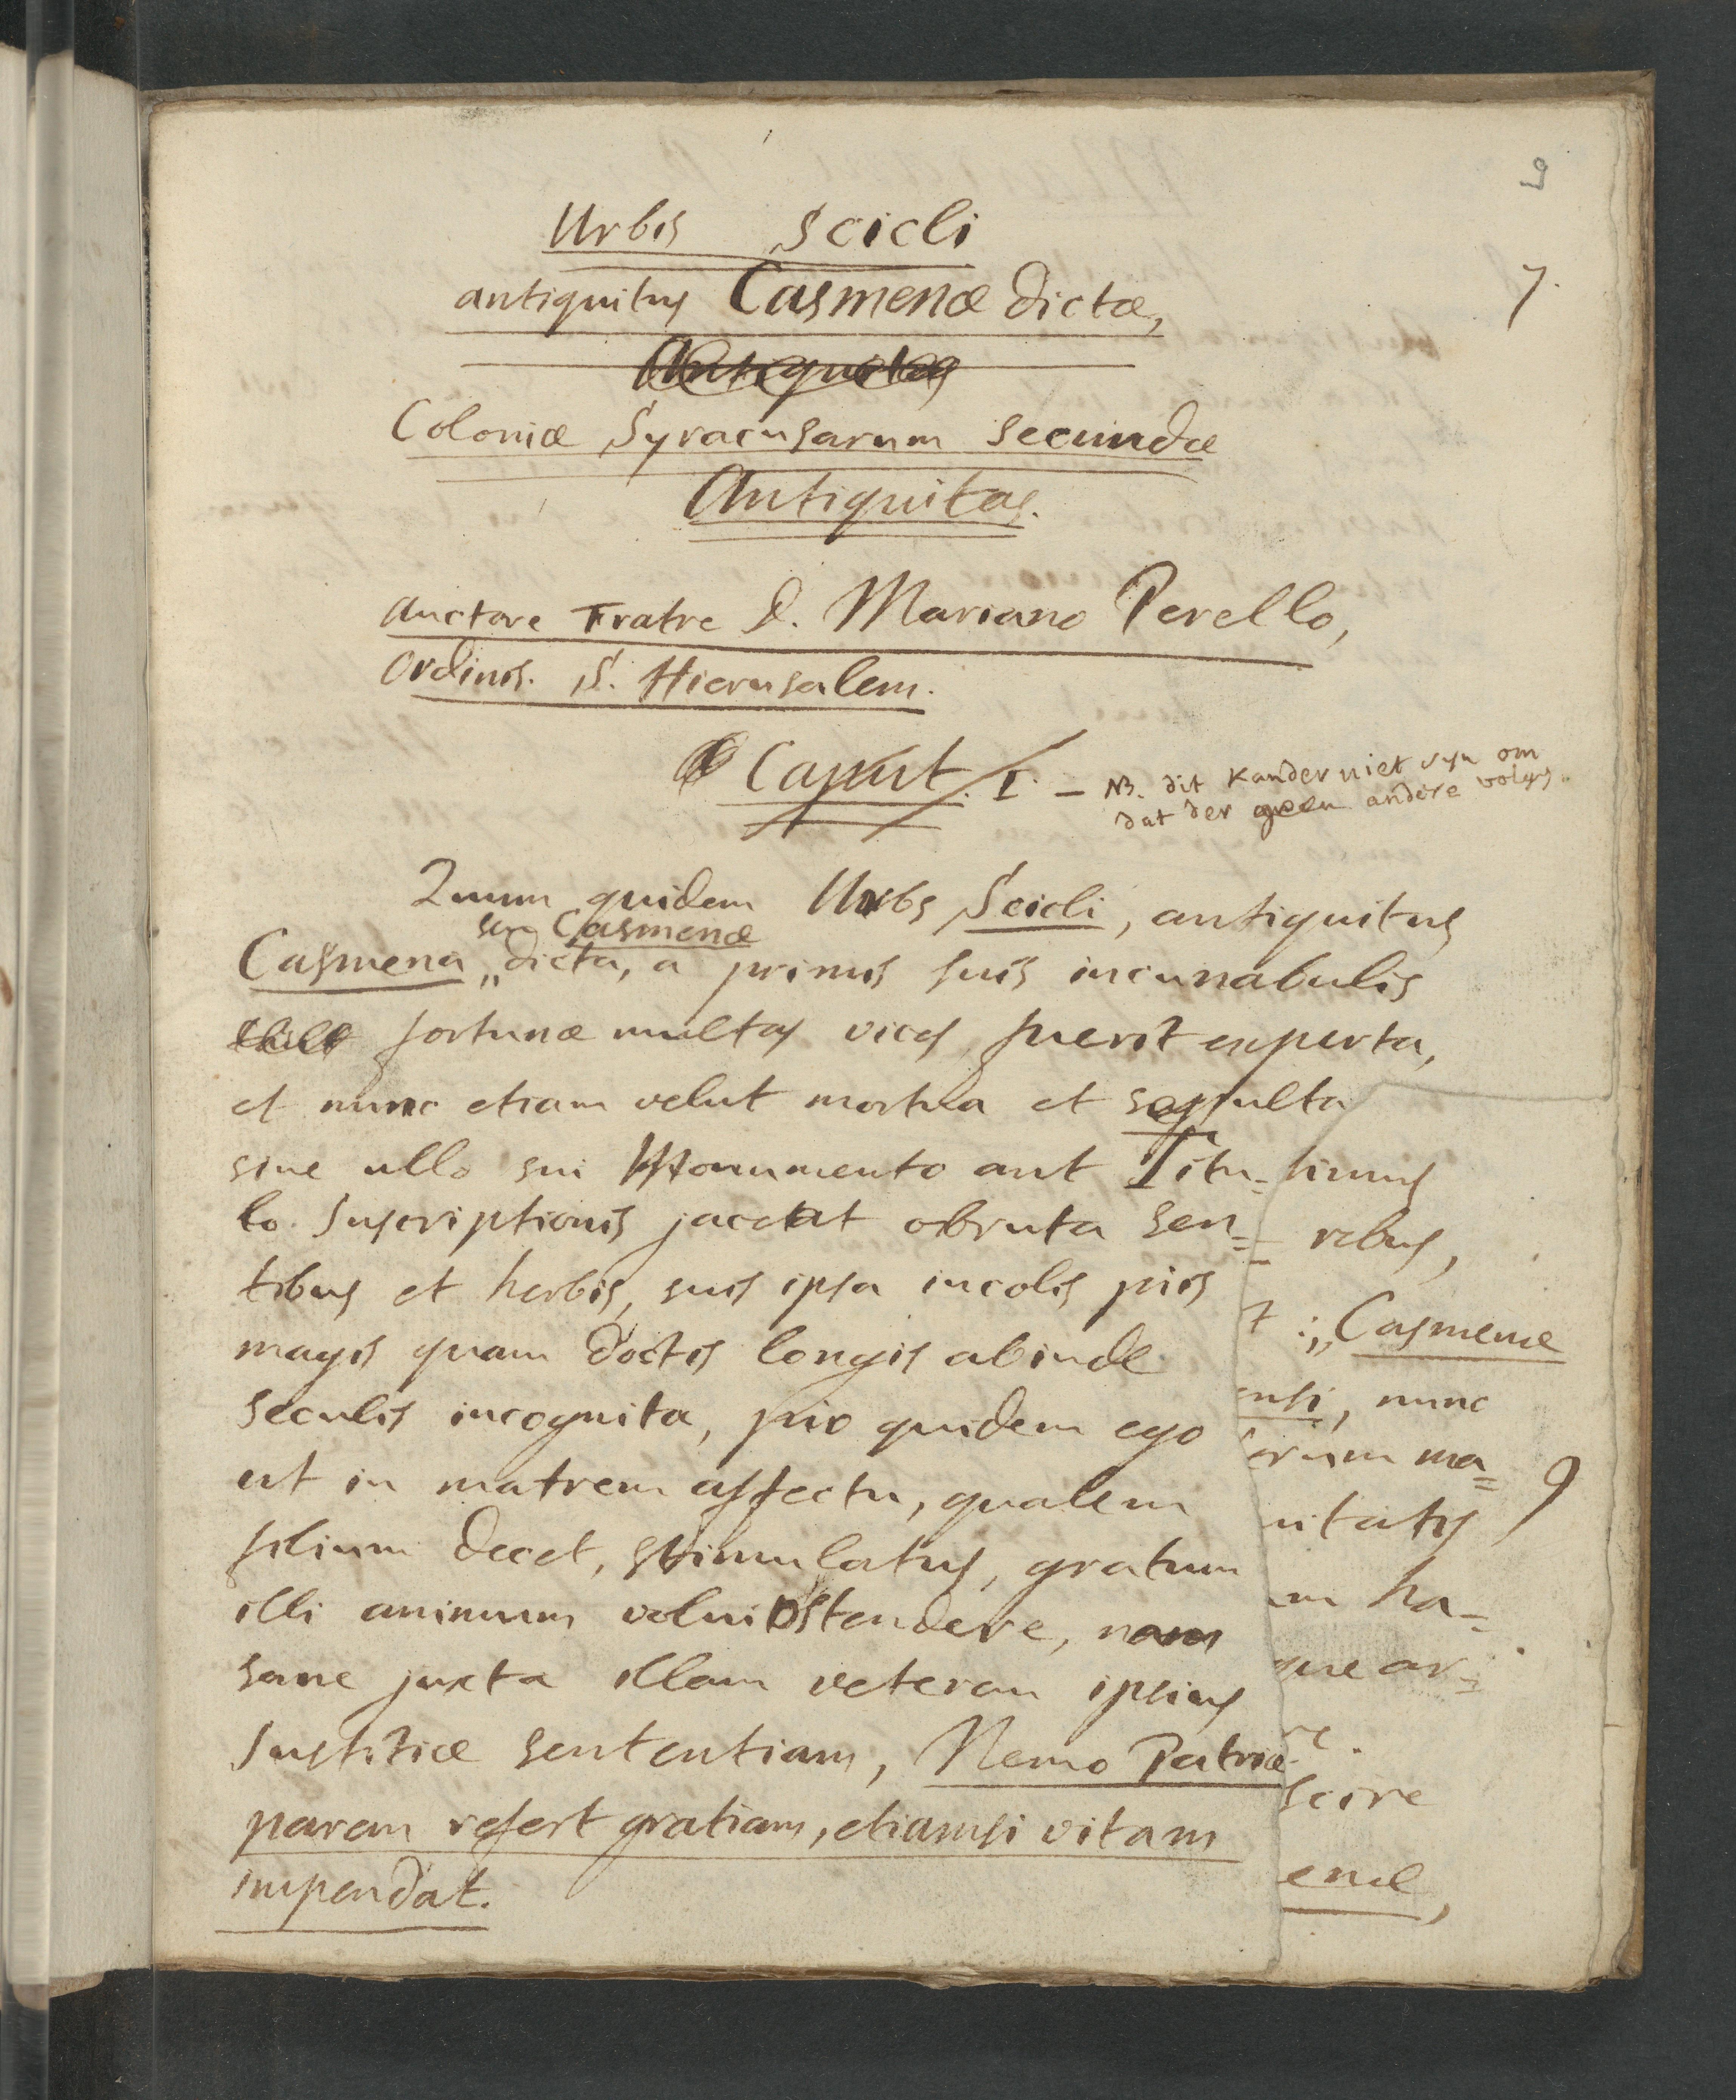 9
7.
Urbis Scicli
antiquitus Casmenæ dictæ,
Antiquitas
Coloniæ Syracusarum secundæ
Antiquitas.
Auctore Fratre D. Mariano Perello,
Ordinis. S. Hierusalem.
Caput. I. – NB. dit kander niet syn om
dat der geen andere volgs.
Quum quidem Urbs Scicli, antiquitus
seu Casmenæ
Casmena „ dicta, a primis suis incunabulis
fortunæ multas vices fuerit experta,
et nunc etiam velut mortua et sepulta
sine ullo sui Monumento aut Titu-
lo Inscriptionis jaceat obruta sen=
tibus et herbis, suis ipsa incolis piis
magis quam doctis longis abinde
seculis incognita, pio quidem ego
ut in matrem affectu, qualem
filium decet, stimulatus, gratum
illi animum volui ostendere, nam
sane juxta illam veterem ipsius
Justitiæ sententiam, Nemo Patriæ
parem refert gratiam, etiamsi vitam
impendat.
simus
rebus,
t :„ Casmenæ
ensi, nunc
orum ma=
nitatis
m ha=
que ar=
re
scire
enæ,
9